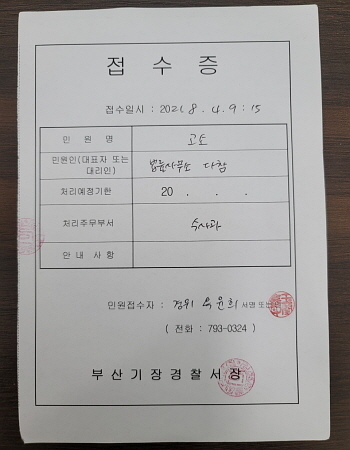 접 수 증
접수일시 : 2021. 8. 4. 9:15
민 원 명 고소
민원인(대표자 또는 대리인) 법률사무소 다참
처리예정기한 20 . . .
처리주무부서 수사과
안 내 사 항
민원접수자 : 경위 윤희 서명 또는
( 전화 : 793-0324 )
부 산 기 장 경 찰 서 장